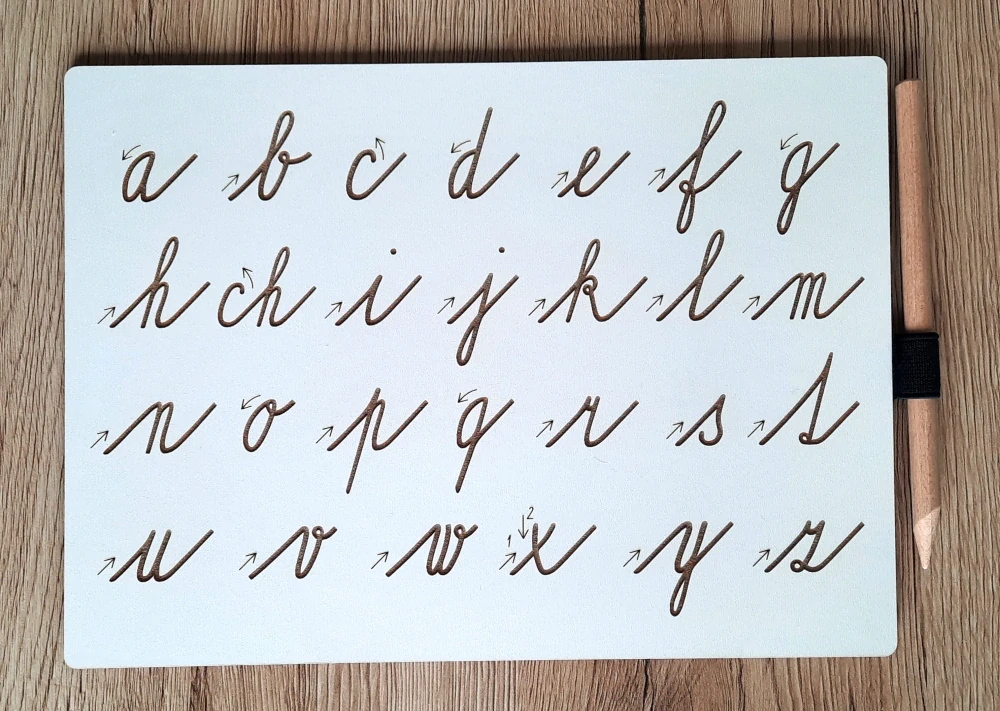 a b c d e f g
h ch i j k l m
n o p q r s t
u v w x y z
1 2